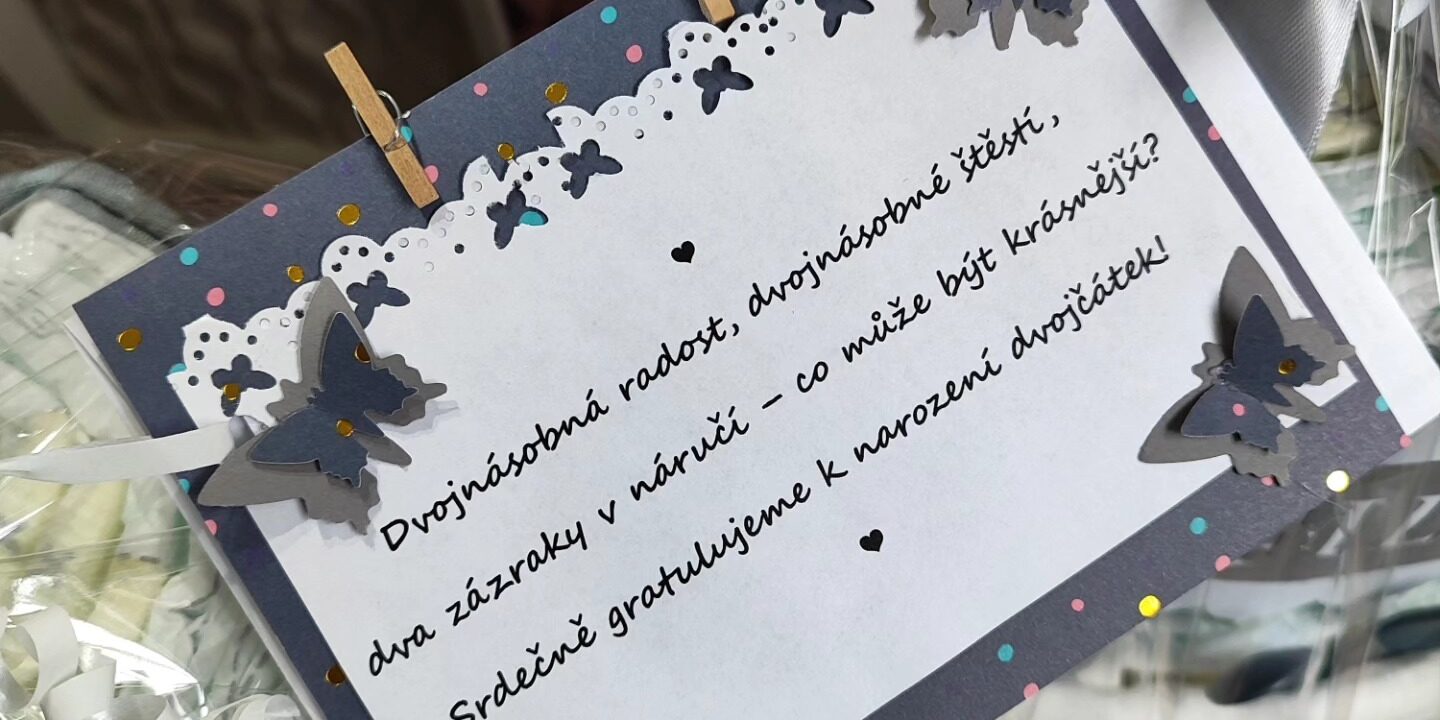 ♥
Dvojnásobná radost, dvojnásobné štěstí,
dva zázraky v náručí – co může být krásnější?
Srdečně gratulujeme k narození dvojčátek!
♥